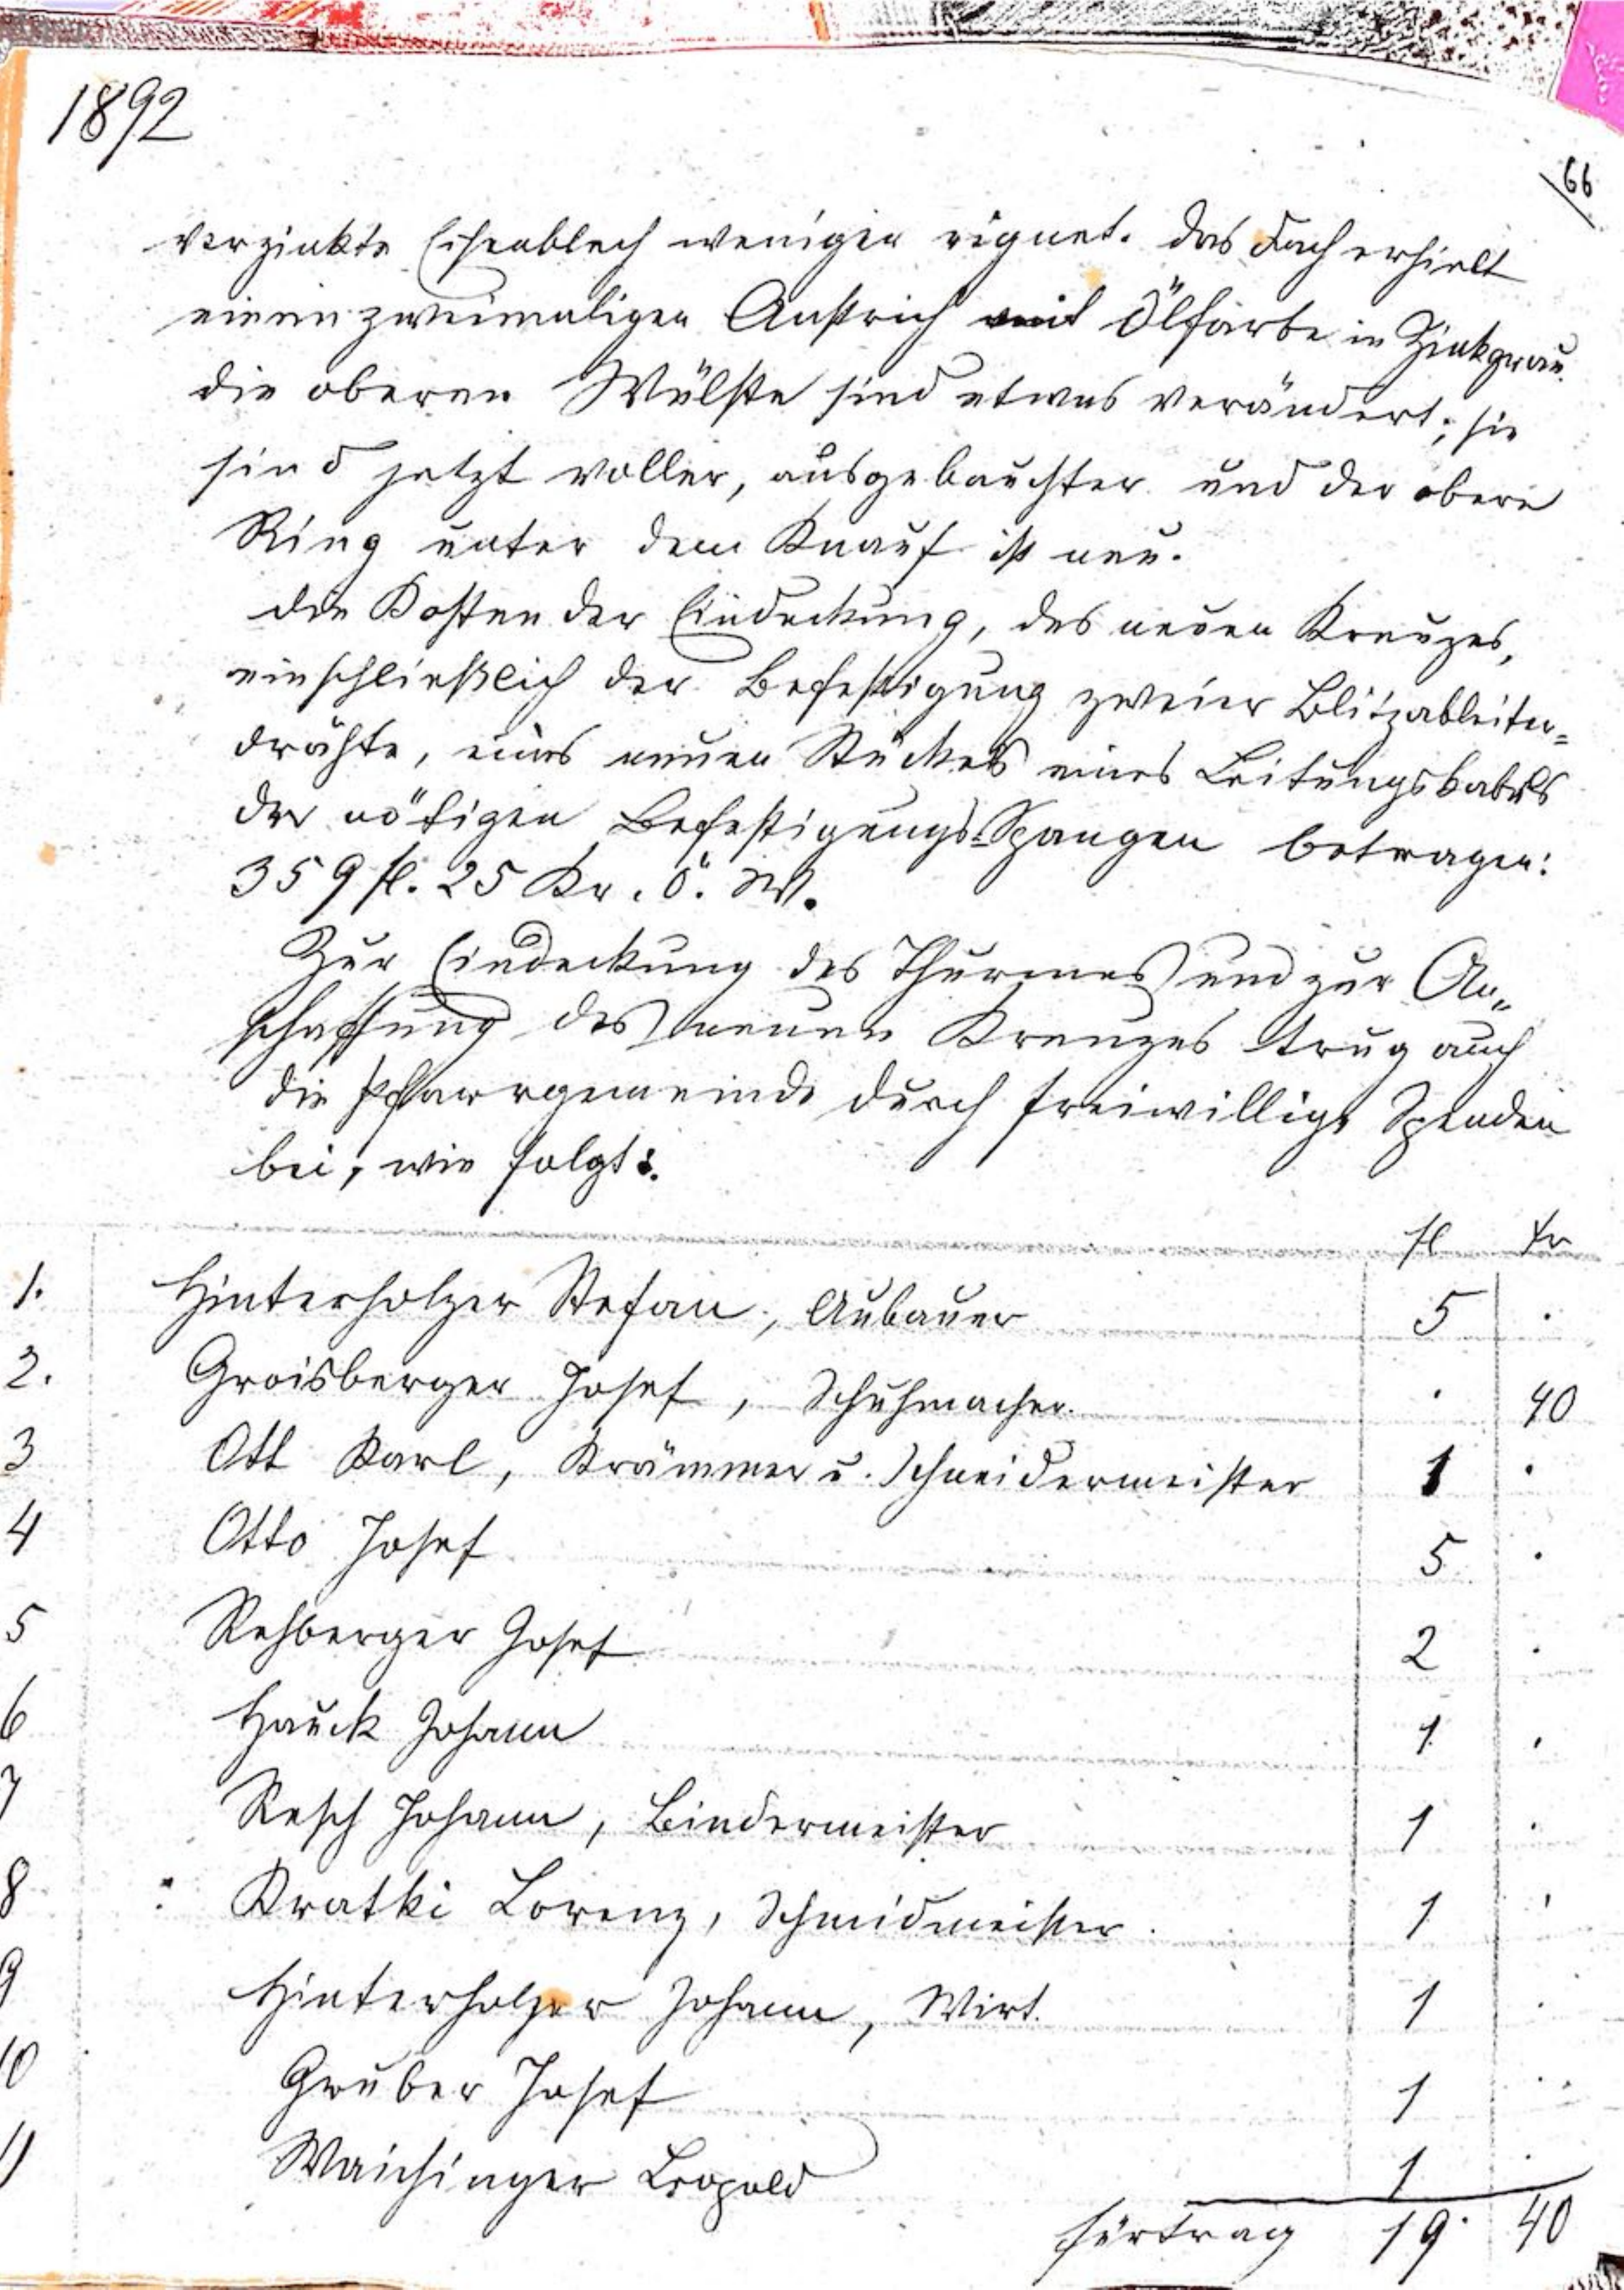 1892
66
verzinkte Eisenblech weniger eignet. Das Dach erhielt
einen zweimaligen Anstrich mit Ölfarbe in Zinkgrau.
Die oberen Wülste sind etwas verändert; sie
sind jetzt voller, ausgebauchter und der obere
Ring unter dem Knauf ist neu.
Die Kosten der Eindeckung, des neuen Kreuzes,
einschließlich der Befestigung zweier Blitzableiter=
drähte, eines neuen Stückes eines Leitungskabels
der nötigen Befestigungs-Spangen betragen:
359 fl. 25 Kr. Ö. W.
Zur Eindeckung des Thurmes und zur An=
schaffung des neuen Kreuzes trug auch
die Pfarrgemeinde durch freiwillige Spenden
bei, wie folgt:
fl kr
1. Hinterholzer Stefan, Aubauer 5 .
2. Groisberger Josef, Schuhmacher . 40
3 Ott Karl, Krämmer u. Schneidermeister 1 .
4 Otto Josef 5 .
5 Rehberger Josef 2 .
6 Hauck Johann 1 .
7 Resch Johann, Bindermeister 1 .
8 Kratki Lorenz, Schmidmeister 1 .
9 Hinterholzer Johann, Wirt. 1 .
10 Gruber Josef 1 .
11 Waichinger Leopold 1 .
Fürtrag 19. 40